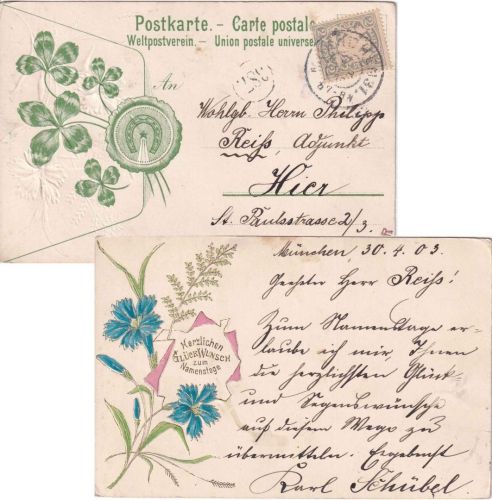 Postkarte. - Carte postale
Weltpostverein. - Union postale universelle
An
Wohlgb. Herrn Philipp
Reiß, Adjunkt
Hier
St. Paulsstrasse 2/3.
München 30.4.03.
Geehrter Herr Reiß!
Zum Namenstage er-
laube ich mir, Ihnen
die herzlichsten Glück-
und Segenswünsche
auf diesem Wege zu
übermitteln. Ergebenst
Karl Schübel.
Herzlichen
GLÜCKWUNSCH
zum
Namenstage